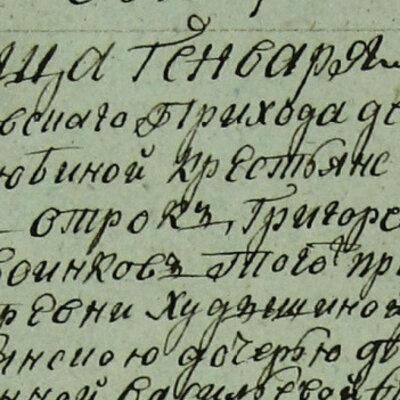 ица Генваря
вскаго Прихода де
ювиной крестьянс
отрокъ, Григоре
воинковъ того пр
ревни Худяшиной
инскою дочерью де
нной Васильевой